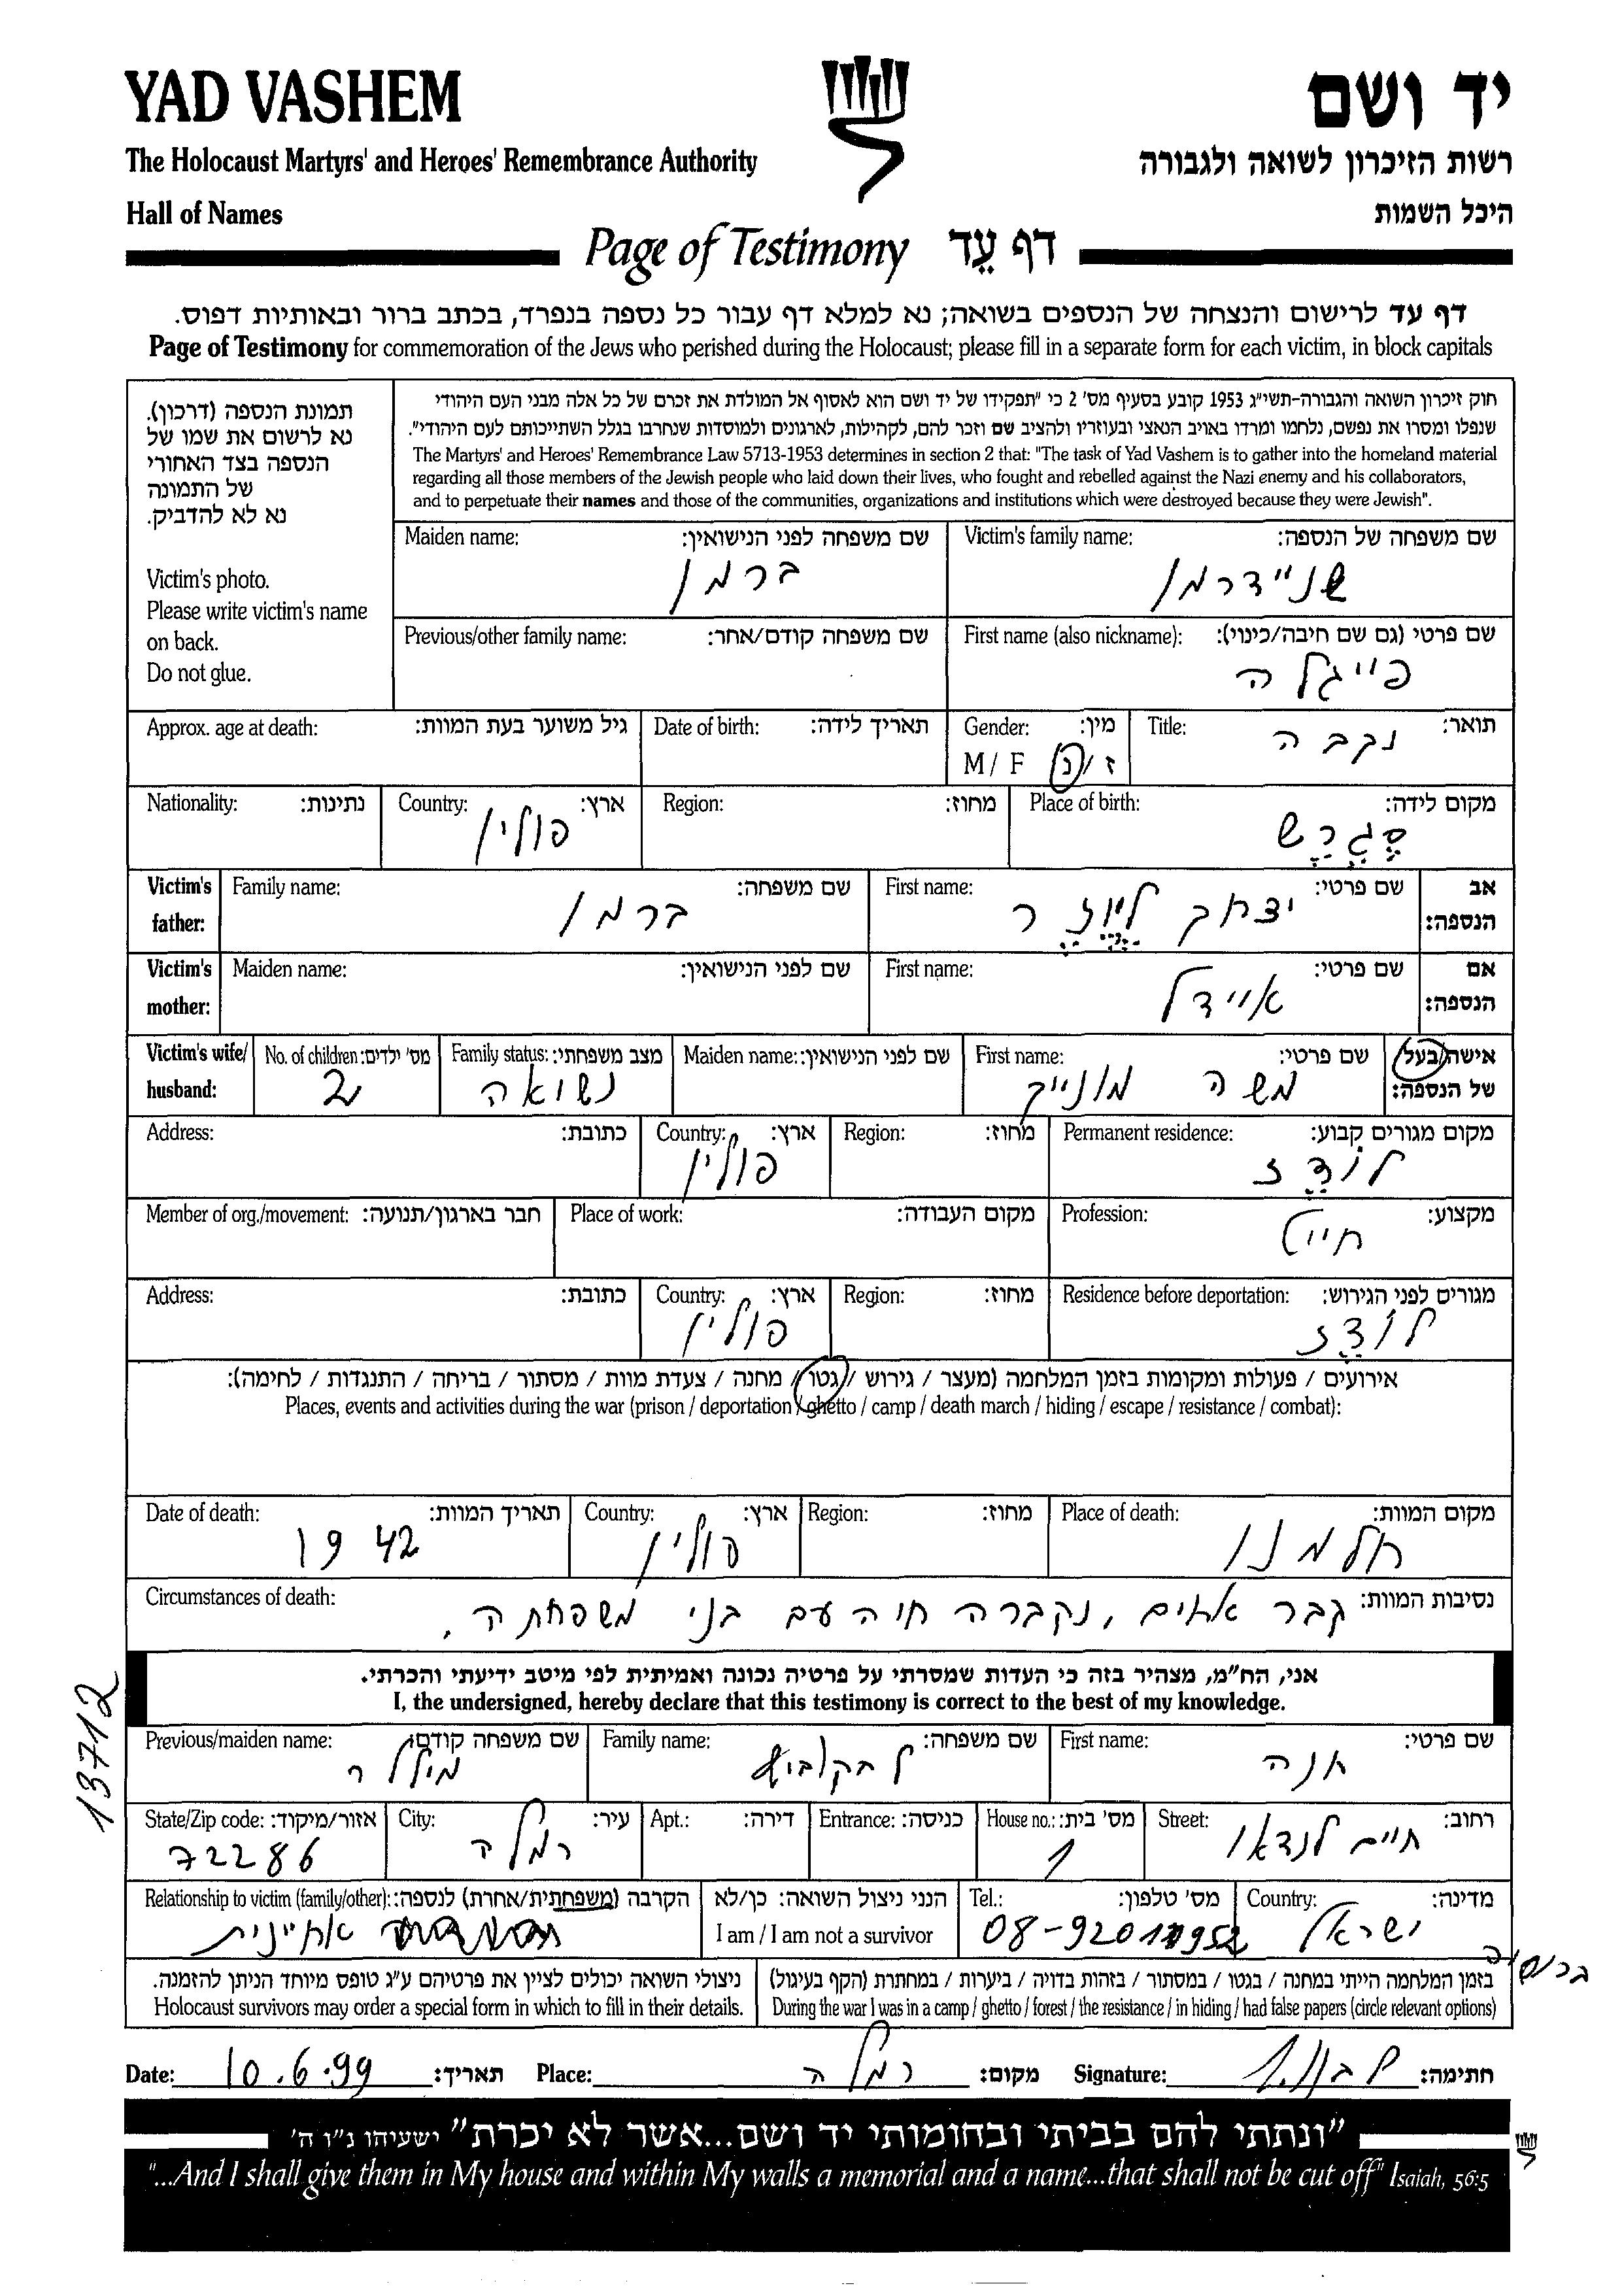 YAD VASHEM
יד ושם
The Holocaust Martyrs' and Heroes' Remembrance Authority
רשות הזיכרון לשואה ולגבורה
Hall of Names
היכל השמות
Page of Testimony דף עֵד
דף עד לרישום והנצחה של הנספים בשואה; נא למלא דף עבור כל נספה בנפרד, בכתב ברור ובאותיות דפוס.
Page of Testimony for commemoration of the Jews who perished during the Holocaust; please fill in a separate form for each victim, in block capitals
תמונת הנספה (דרכון).
נא לרשום את שמו של
הנספה בצד האחורי
של התמונה
נא לא להדביק.
Victim's photo.
Please write victim's name
on back.
Do not glue.
חוק זיכרון השואה והגבורה-תשי"ג 1953 קובע בסעיף מס' 2 כי "תפקידו של יד ושם הוא לאסוף אל המולדת את זכרם של כל אלה מבני העם היהודי
שנפלו ומסרו את נפשם, נלחמו ומרדו באויב הנאצי ובעוזריו ולהציב שם וזכר להם, לקהילות, לארגונים ולמוסדות שנחרבו בגלל השתייכותם לעם היהודי".
The Martyrs' and Heroes' Remembrance Law 5713-1953 determines in section 2 that: "The task of Yad Vashem is to gather into the homeland material
regarding all those members of the Jewish people who laid down their lives, who fought and rebelled against the Nazi enemy and his collaborators,
and to perpetuate their names and those of the communities, organizations and institutions which were destroyed because they were Jewish".
Victim's family name: שם משפחה של הנספה:
שניידרמן
Maiden name: שם משפחה לפני הנישואין:
ברמן
First name (also nickname): שם פרטי (גם שם חיבה/כינוי):
פייגלה
Previous/other family name: שם משפחה קודם/אחר:
Title: תואר:
נקבה
Gender: מין:
M / F ז / נ
Date of birth: תאריך לידה:
Approx. age at death: גיל משוער בעת המוות:
Place of birth: מקום לידה:
סֶגֶרַש
Region: מחוז:
Country: ארץ:
פולין
Nationality: נתינות:
Victim's father: אב הנספה:
First name: שם פרטי:
יצחק לייזר
Family name: שם משפחה:
ברמן
Victim's mother: אם הנספה:
First name: שם פרטי:
איידל
Maiden name: שם לפני הנישואין:
Victim's wife/ husband: אישה/בעל של הנספה:
First name: שם פרטי:
משה מוניק
Maiden name: שם לפני הנישואין:
Family status: מצב משפחתי:
נשואה
No. of children: מס' ילדים:
2
Permanent residence: מקום מגורים קבוע:
לודז
Region: מחוז:
Country: ארץ:
פולין
Address: כתובת:
Profession: מקצוע:
חייט
Place of work: מקום העבודה:
Member of org./movement: חבר בארגון/תנועה:
Residence before deportation: מגורים לפני הגירוש:
לודז
Region: מחוז:
Country: ארץ:
פולין
Address: כתובת:
אירועים / פעולות ומקומות בזמן המלחמה (מעצר / גירוש / גטו / מחנה / צעדת מוות / מסתור / בריחה / התנגדות / לחימה):
Places, events and activities during the war (prison / deportation / ghetto / camp / death march / hiding / escape / resistance / combat):
Place of death: מקום המוות:
חלמנו
Region: מחוז:
Country: ארץ:
פולין
Date of death: תאריך המוות:
1942
Circumstances of death: נסיבות המוות:
קבר אחים, נקברה חיה עם בני משפחתה.
אני, הח"מ, מצהיר בזה כי העדות שמסרתי על פרטיה נכונה ואמיתית לפי מיטב ידיעתי והכרתי.
I, the undersigned, hereby declare that this testimony is correct to the best of my knowledge.
13712
First name: שם פרטי:
חנה
Family name: שם משפחה:
Previous/maiden name: שם משפחה קודם:
מילר
Street: רחוב:
חיים לנדאו
House no.: מס' בית:
1
Entrance: כניסה:
Apt.: דירה:
City: עיר:
רמלה
State/Zip code: אזור/מיקוד:
72286
Country: מדינה:
ישראל
Tel.: מס' טלפון:
I am / I am not a survivor הנני ניצול השואה: כן/לא
Relationship to victim (family/other): הקרבה (משפחתית/אחרת) לנספה:
אחיינית
בזמן המלחמה הייתי במחנה / בגטו / במסתור / בזהות בדויה / ביערות / במחתרת (הקף בעיגול)
During the war I was in a camp / ghetto / forest / the resistance / in hiding / had false papers (circle relevant options)
ברוסיה
ניצולי השואה יכולים לציין את פרטיהם ע"ג טופס מיוחד הניתן להזמנה.
Holocaust survivors may order a special form in which to fill in their details.
Date: 10.6.99 תאריך:
Place: רמלה מקום:
Signature: חתימה:
"ונתתי להם בביתי ובחומותי יד ושם...אשר לא יכרת" ישעיהו נ"ו ה'
"...And I shall give them in My house and within My walls a memorial and a name...that shall not be cut off" Isaiah, 56:5